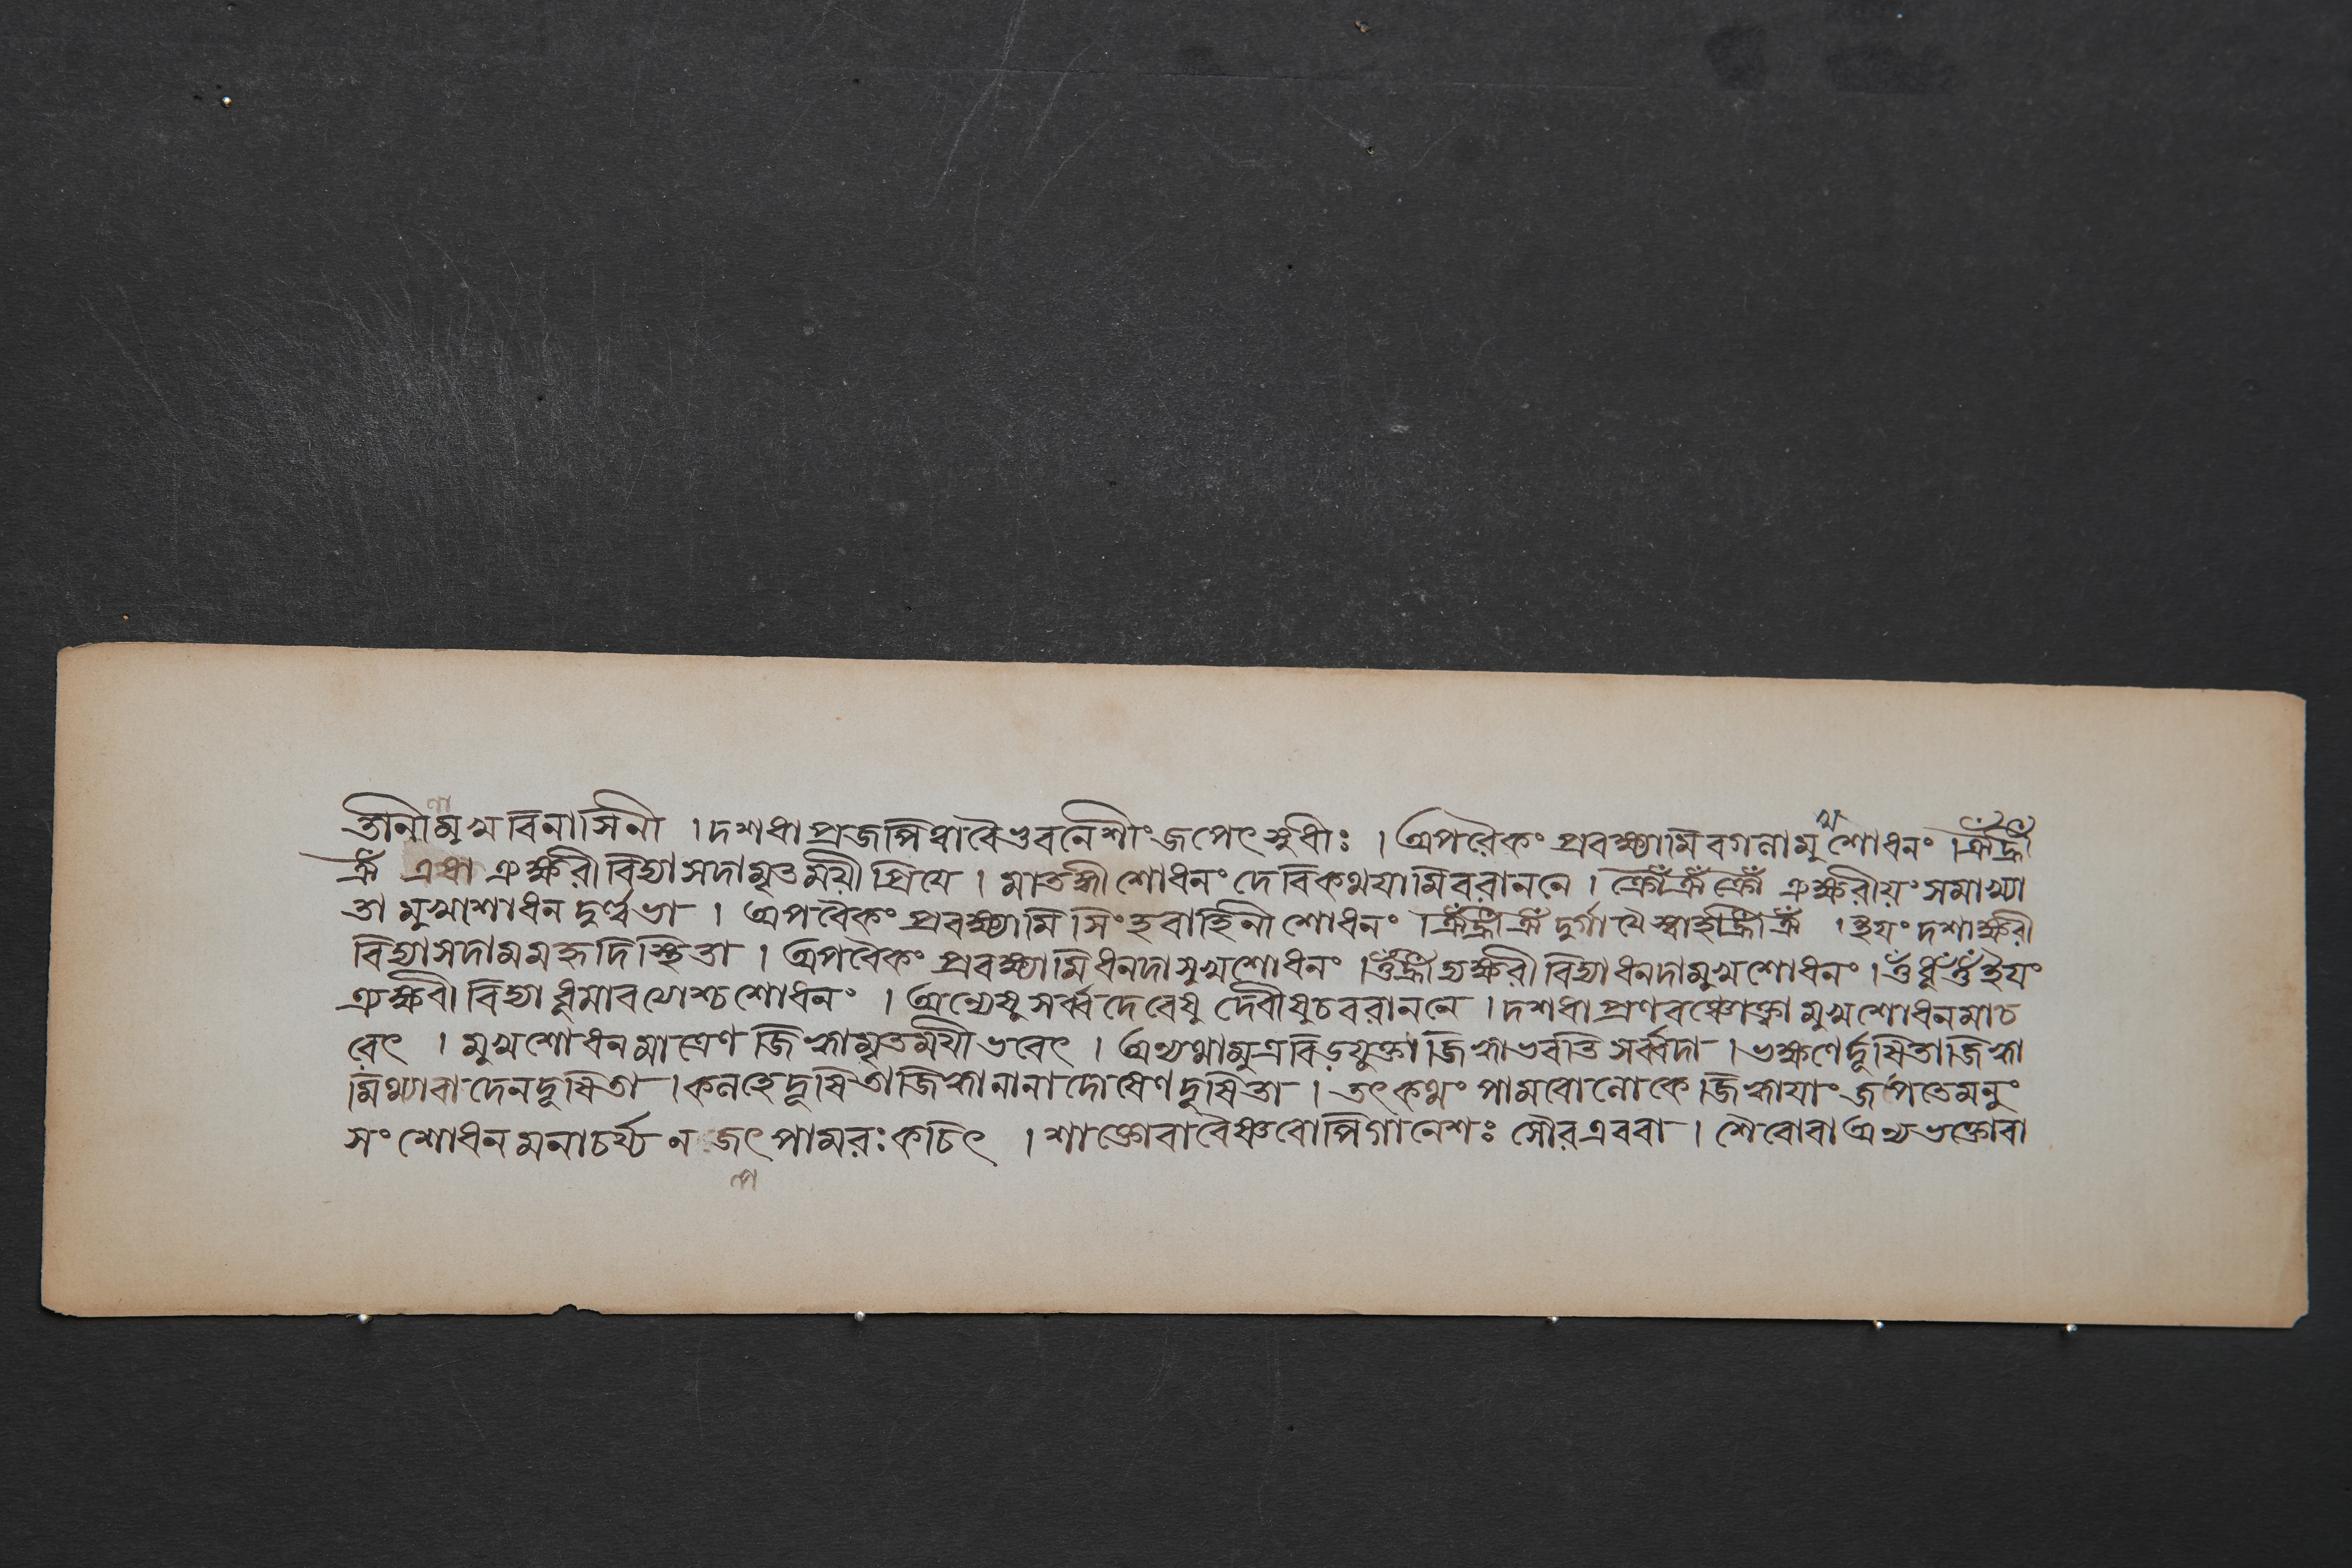 তানীমুখবিনাসিনী । দশধা প্রজপিত্বাবৈভুবনেশীং জপেৎসুধীঃ । অপরৈকং প্রবক্ষ্যামি বগলামুখশোধনং । ঐঁ হ্রীঁ
ঐঁ এষা ত্র্যক্ষরী বিদ্যা সদামৃতময়ী প্রিয়ে । মাতঙ্গী শোধনং দেবি কথয়ামি বরাননে । ক্রোঁ ঐঁ ক্রোঁ ত্র্যক্ষরীয়ং সমাখ্যা
তা মুখাশোধন দুর্ল্লভা । অপরৈকং প্রবক্ষ্যামি সিংহবাহিনী শোধনং । ঐঁ হ্রীঁ ঐঁ দুর্গায়ৈ স্বাহা হ্রীঁ ঐঁ । ইয়ং দশাক্ষরী
বিদ্যা সদা মম হৃদি স্থিতা । অপরৈকং প্রবক্ষ্যামি ধনদামুখশোধনং । ওঁ হ্রীঁ ত্র্যক্ষরী বিদ্যা ধনদামুখশোধনং । ওঁ ধূঁ ওঁ ইয়ং
ত্র্যক্ষরী বিদ্যা ধূমাবত্যোশ্চ শোধনং । অন্যেষু সর্ব্বদেবেষু দেবীষু চ বরাননে । দশধা প্রণবঞ্চোক্ত্বা মুখশোধনমাচ
রেৎ । মুখশোধনমাত্রেণ জিহ্বামৃতময়ী ভবেৎ । অন্যথা মুত্রবিড়যুক্তা জিহ্বা ভবতি সর্ব্বদা । ভক্ষণে র্দূষিতা জিহ্বা
মিথ্যাবাদেন দূষিতা । কলহে দূষিতা জিহ্বা নানাদোষেণ দূষিতা । তৎকথং পামরো লোকে জিহ্বায়াং জপতে মনুং
সংশোধনমনাচর্য্য ন জপেৎ পামরঃ কচিৎ । শাক্তো বা বৈষ্ণবোপি গানেশঃ সৌর এব বা । শৈবো বা অন্য ভক্তো বা